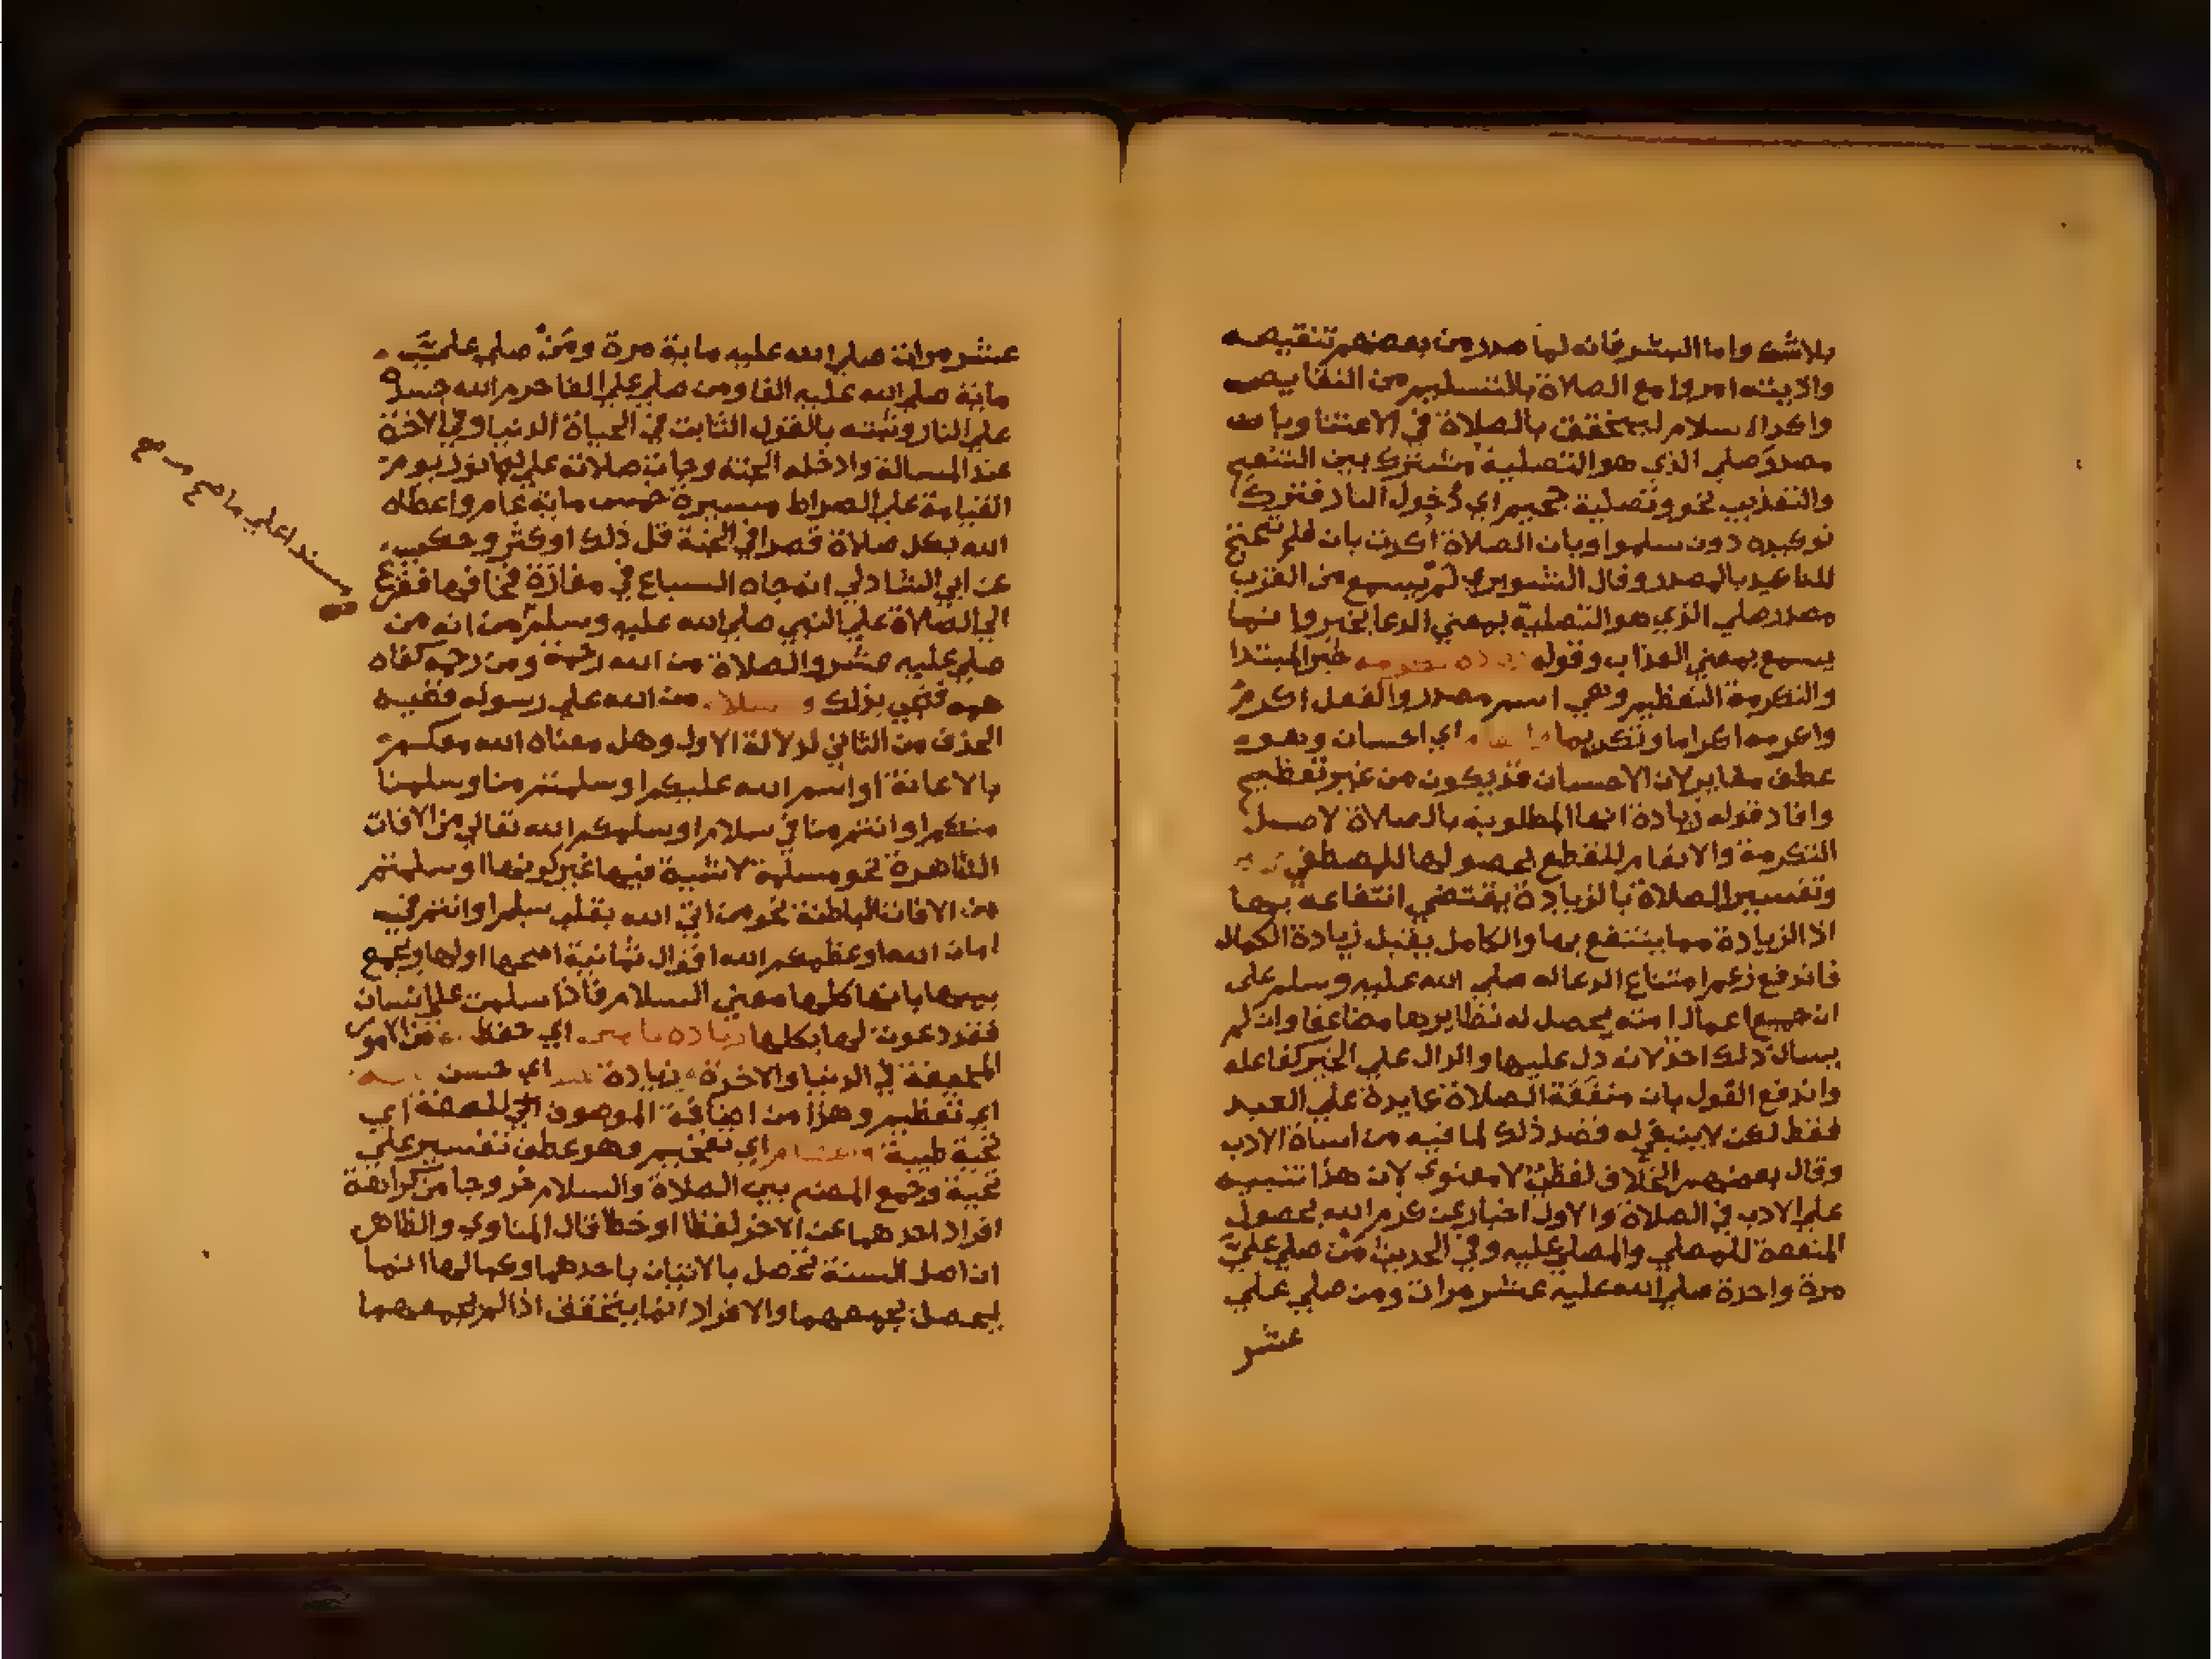 بلاشك واما البشر فانه لما صدر من بعضهم تنقيصه
واذيته امروا مع الصلاة بالتسليم من النقايص
واكد السلام ليتحقق بالصلاة في الاعتنا وبان
مصدر صلي الذي هو التصلية مشترك بين التنعيم
والتعذيب نحو وتصلية جحيم اي دخول النار فترك
توكيده دون سلموا وبان الصلاة اكدت بان فلم تحتج
للتاكيد بالمصدر وقال الشويري لم يسمع من العرب
مصدر صلي الذي هو التصلية بمعني الدعا بخير وانما
يسمع بمعني العذاب وقوله خبر المبتدا
والتكرمة التعظيم وهي اسم مصدر والفعل اكرم
واكرمه اكراما وتكريما اي احسان وهو
عطف مغاير لان الاحسان قد يكون من غير تعظيم
وافاد قوله زيادة انها المطلوبة بالصلاة لاصل
التكرمة والانعام للقطع بحصولها للمصطفي
وتفسير الصلاة بالزيادة يقتضي انتفاعه بها
اذ الزيادة مما ينتفع بها والكامل يقبل زيادة الكمال
فاندفع زعم امتناع الدعا له صلي الله عليه وسلم على
ان جميع اعمال امته يحصل له نظايرها مضاعفا وان لم
يسال ذلك احد لانه دل عليها والدال علي الخير كفاعله
واندفع القول بان منفعة الصلاة عايدة علي العبد
فقط لكن لا ينبغي له قصد ذلك لما فيه من اساة الادب
وقال بعضهم الخلاف لفظي لا معنوي لان هذا تنبيه
علي الادب في الصلاة والاول اخبار عن كرم الله بحصول
المنفعة للمصلي والمصلي عليه وفي الحديث من صلي علي
مرة واحدة صلي الله عليه عشر مرات ومن صلي علي
عشر
عشر مرات صلي الله عليه ماية مرة ومن صلي علي
ماية صلي الله عليه الفا ومن صلي علي الفا حرم الله جسده
علي النار وثبته بالقول الثابت في الحياة الدنيا وفي الاخرة
عند المسالة وادخله الجنة وجات صلاته علي لها نور يوم
القيامة علي الصراط مسيرة خمس ماية عام واعطاه
الله بكل صلاة قصرا في الجنة قل ذلك او كثر وحكي
عن ابي الشاذلي انه جاه السباع في مفازة فخافها ففزع
الي الصلاة علي النبي صلي الله عليه وسلم من انه من
صلي عليه عشر والصلاة من الله رحمة ومن رحمه كفاه
همه فنجي بذلك و سلام من الله علي رسوله ففيه
الحذف من الثاني لدلالة الاول وهل معناه الله معكم
بالاعانة او اسم الله عليكم او سلمتم منا وسلمنا
منكم او انتم منا في سلام او سلمكم الله تعالي من الافات
الظاهرة نحو مسلمة لا شية فيها غير كونها او سلمتم
من الافات الباطنة نحو من اتي الله بقلب سليم او انتم في
امان الله او عظمكم الله اقوال ثمانية اصحها اولها وجمع
بينها بانها كلها معني السلام فاذا سلمت علي انسان
فقد دعوت لها بكلها اي حفظ من الامور
المخوفة في الدنيا والاخرة زيادة اي حسن
اي تعظيم وهذا من اضافة الموصوف الي الصفة اي
تحية طيبة اي تفخيم وهو عطف تفسير علي
تحية وجمع المصنف بين الصلاة والسلام خروجا من كراهة
افراد احدهما عن الاخر لفظا او خطا قال المناوي والظاهر
ان اصل السنة تحصل بالاتيان باحدهما وكمالها انما
يحصل بجمعهما والافراد انما يتحقق اذا لم يجمعهما